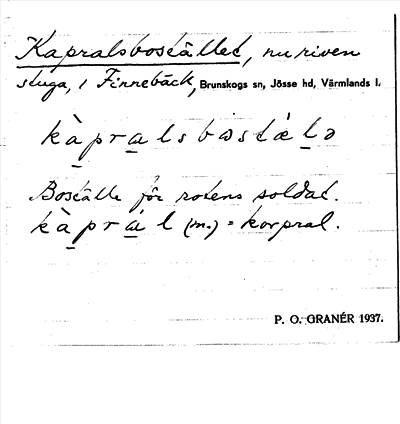 Kapralsbostället, nu riven
stuga, i Finnebäck, Brunskogs sn, Jösse hd, Värmlands l.
kàpralsbostälə
Boställe för rotens soldat.
kàprál (m.) = korpral.
P. O. GRANÉR 1937.